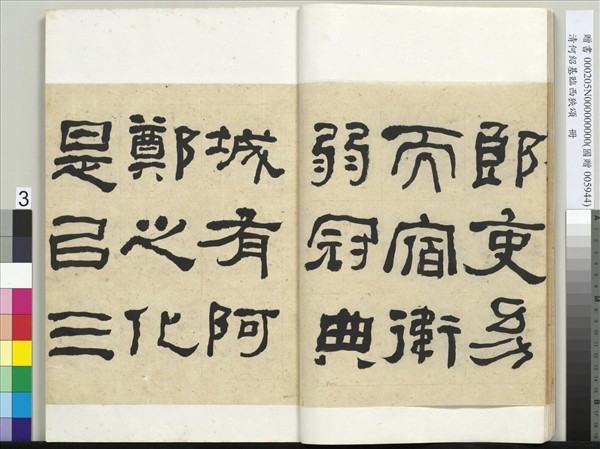 郎吏幼
而宿衛
弱冠典
城有阿
鄭之化
是㠯三
贈書 000205N000000000(國贈 005944)
清何紹基臨西狹頌 冊
3